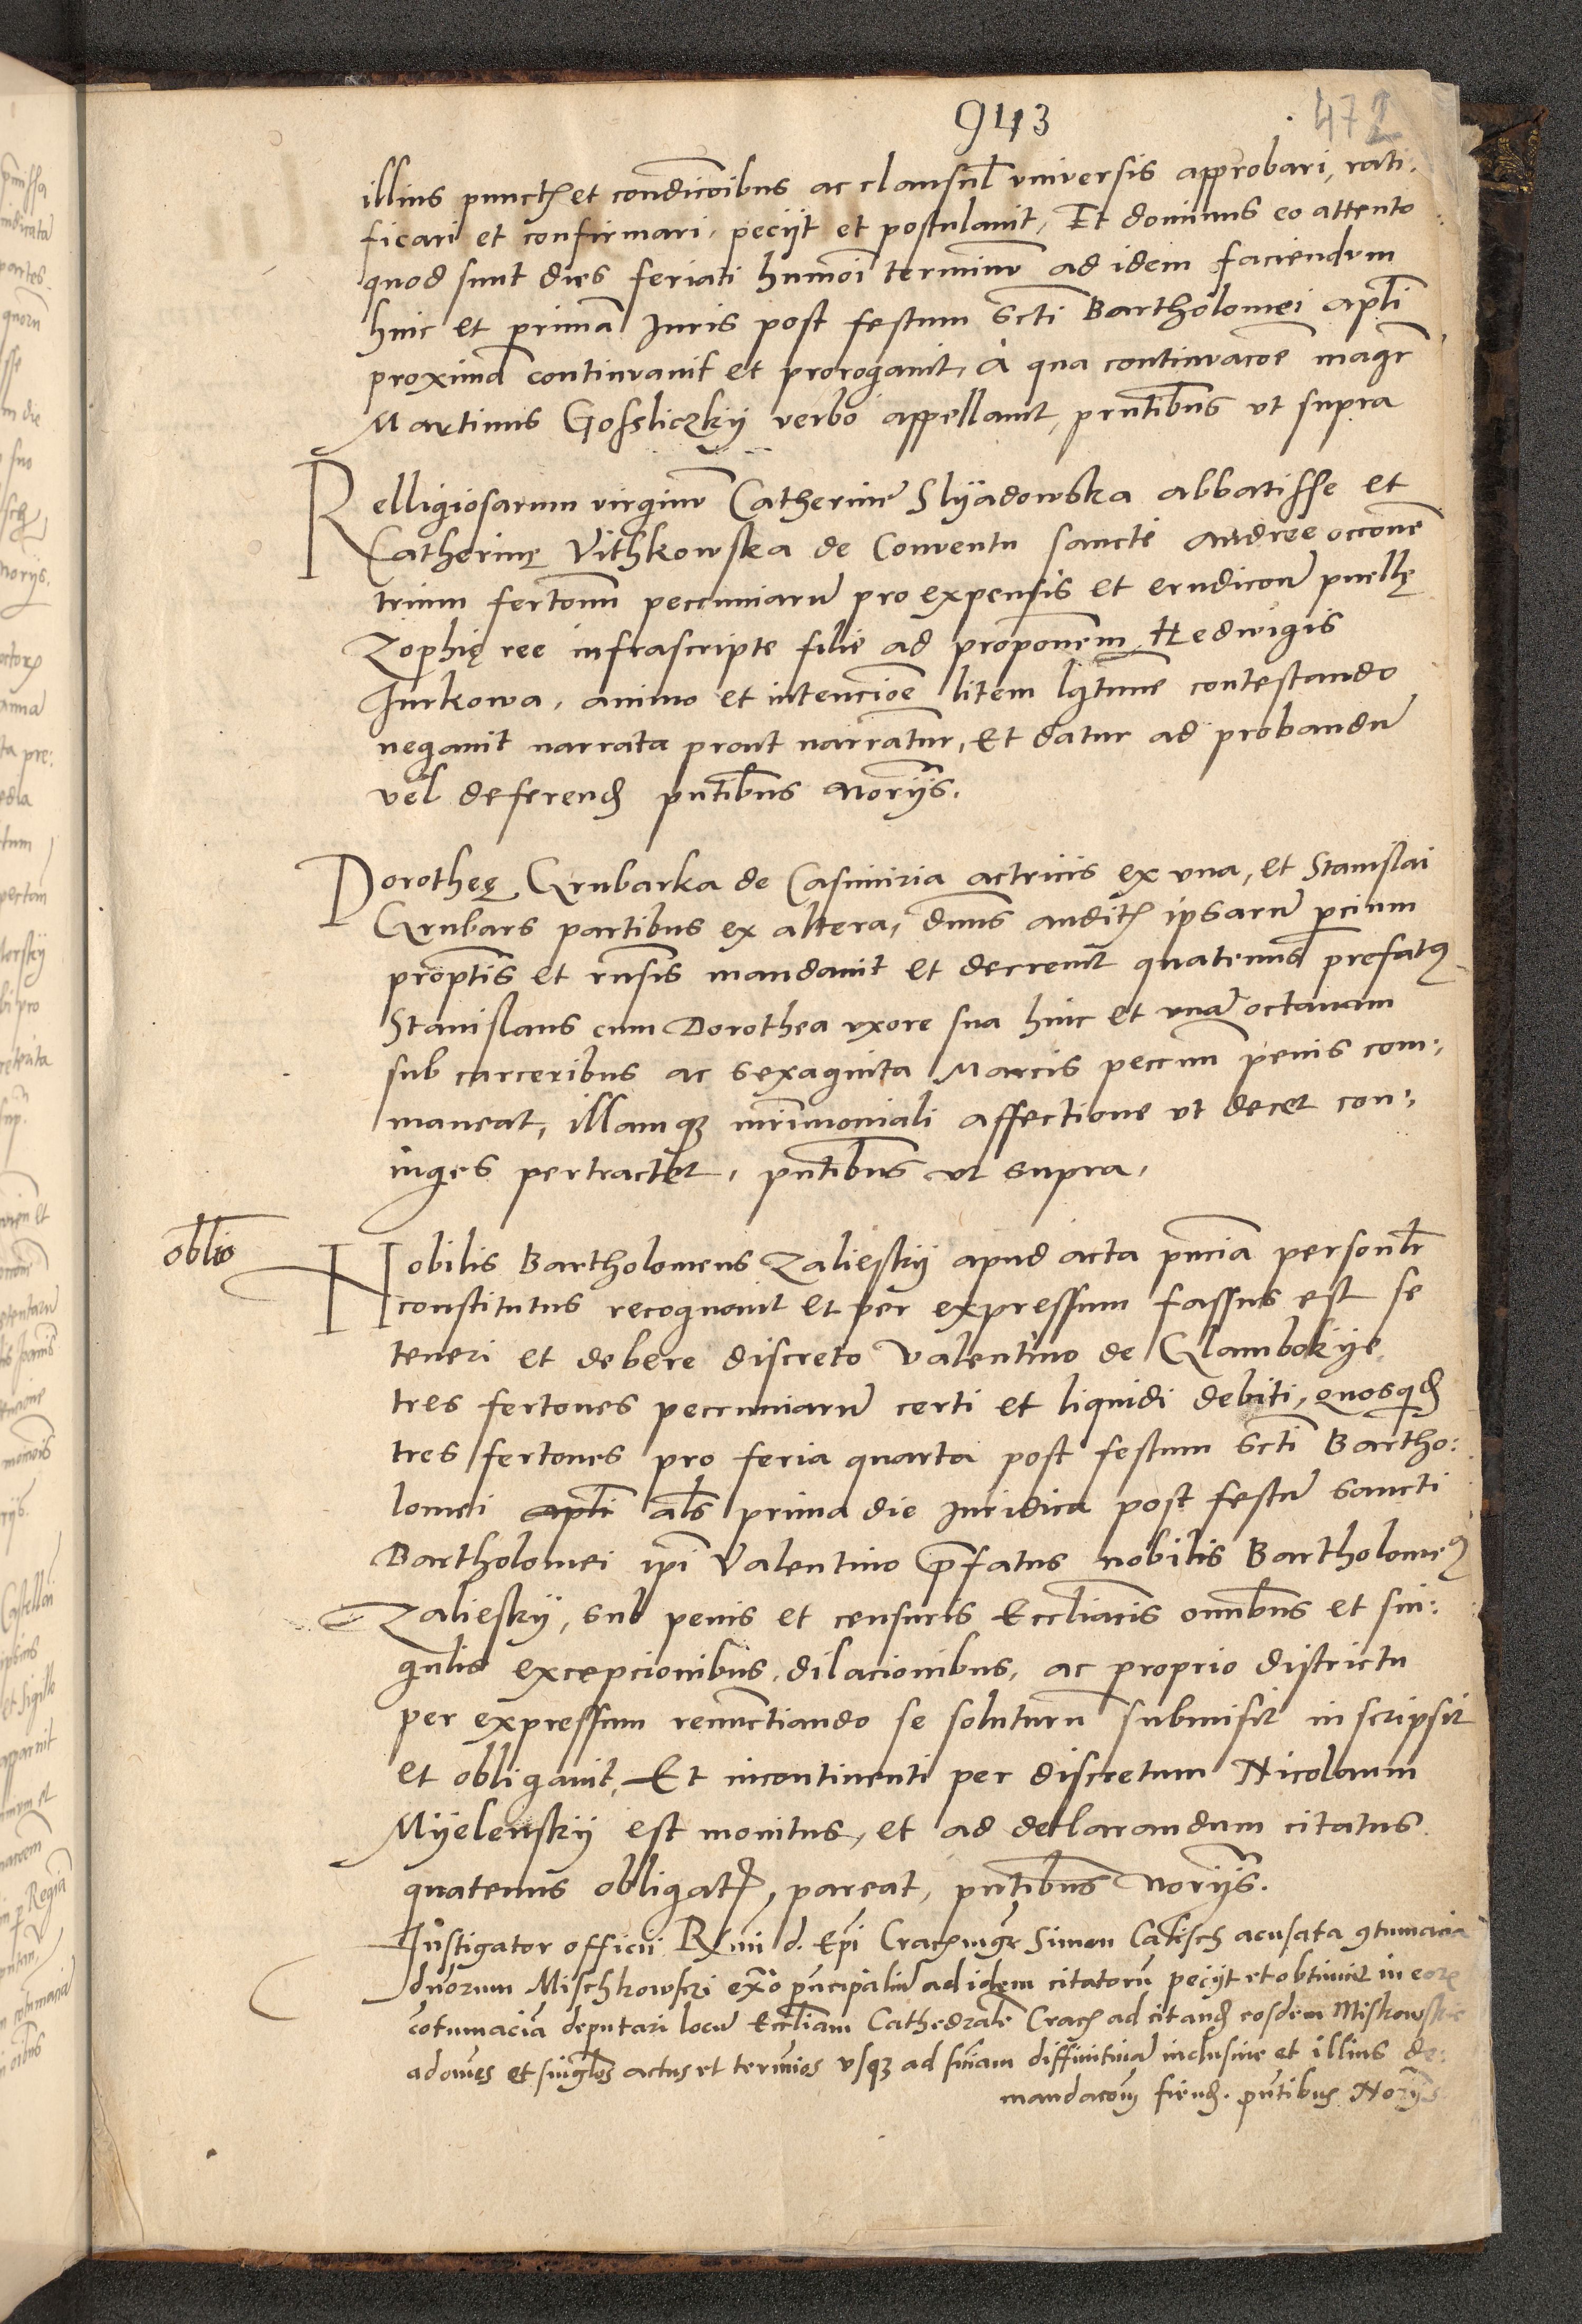 943
472
illius punctis et condicioibus ac clausul vniversis approbari, rati-
ficari et confirmari, peciit et postulavit, Et dominus eo attento
quod sunt dies feriati humoi terminum ad idem faciendum
hinc et primam Iuris post festum Scti Bartholomei apli
proximam continuavit et prorogavit, A qua continuacoe magr
Martinus Gossliczkij verbo appellavit, prntibus vt supra
Relligiosarum virginum Catherine Slijadowska abbatisse et
Catherinę Vithkowska de Conventu sancte Andree occone
trium fertonum pecuniarum pro expensis et erudicone puellę
Zophię ree infrascripte filie ad proponem Hedwigis
Jurkowa, animo et intencioe litem lgtime contestando
negavit narrata prout narrantur, Et datur ad probandum
vel deferend pntibus Norijs.
Dorotheę Grubarka de Casimiria actricis ex vna, et Stanislai
Grubars partibus ex altera, dnus auditis ipsarum parcium
proptis et rnsis mandavit et decrevit quatenus prefatus
Stanislaus cum Dorothea vxore sua hinc et vnam octavam
sub carceribus ac sexaginta Marcis pecun penis com-
maneat, illamque mrimoniali affectione vt decet con-
iuges pertractet, pntibus vt supra,
oblio
Nobilis Bartholomeus Zalieskij apud acta pncia personlr
constitutus recognovit et per expressum fassus est se
teneri et debere discreto Valentino de Glambokije
tres fertones pecuniarum certi et liquidi debiti, quosquid
tres fertones pro feria quarta post festum Scti Bartho-
lomei apli als prima die Iuridica post festum Sancti
Bartholomei ipi Valentino prefatus nobilis Bartholomeus
Zalieskij, sub penis et censuris Eccliacis omnibus et sin-
gulis excepcionibus, dilacionibus, ac proprio districtu
per expressum renunctiando se soluturum submisit inscripsit
et obligavit, Et incontinenti per discretum Nicolaum
Mijelenskij est monitus, et ad declarandum citatus
quatenus obligatis, pareat, pntibus Norijs.
Instigator officii Rmi d. Epi Crac mgr Simon Calisch acusata contumacia
duorum Mischkowsczi exo principalium ad idem citatorum peciit et obtinuit in eorum
cotumaciam deputari locum Eccliam Cathedralem Crac ad citand eosdem Miskowskie
ad omnes et singulos actus et terminos vsque ad sniam diffinitivam inclusive et illius de-
mandacom fiend. pntibus Norijs